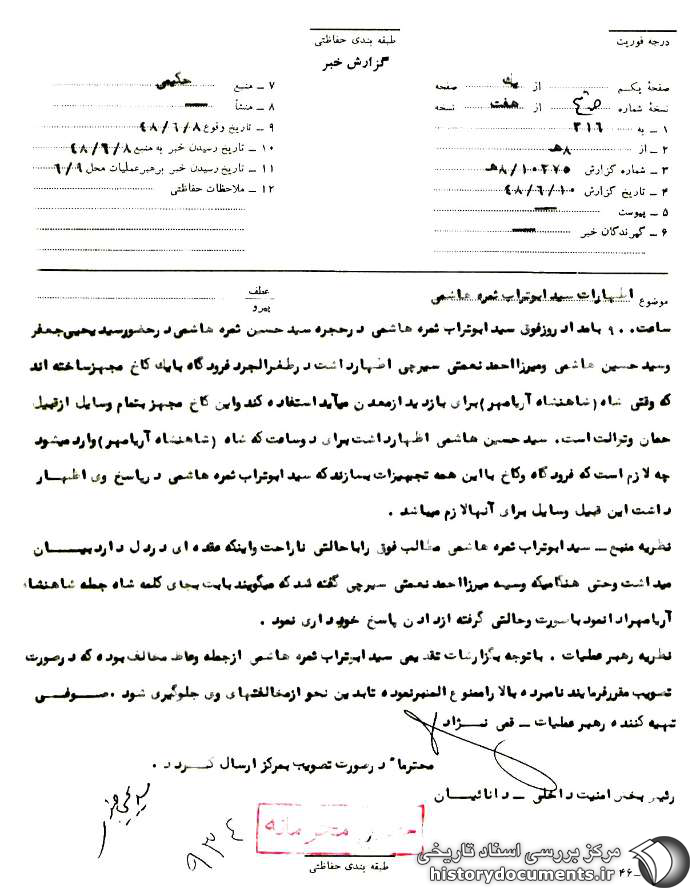 درجه فوریت
طبقه بندی حفاظتی
گزارش خبر
صفحهٔ یکم از یک صفحه
نسخهٔ شماره از هفت نسخه
۱ ـ به ۳۱۶
۲ ـ از ۸ هـ
۳ ـ شماره گزارش ۸/۱۰۲۷۵هـ
۴ ـ تاریخ گزارش ۴۸/۶/۱۰
۵ ـ پیوست ــ
۶ ـ گیرندگان خبر ــ
۷ ـ منبع حکیمی
۸ ـ منشأ ــ
۹ ـ تاریخ وقوع ۴۸/۶/۸
۱۰ ـ تاریخ رسیدن خبر به منبع ۴۸/۶/۸
۱۱ ـ تاریخ رسیدن خبر برهبرعملیات محل ۶/۹
۱۲ ـ ملاحظات حفاظتی
موضوع اظهارات سید ابوتراب ثمره هاشمی
عطف
پیرو
ساعت ۹۰۰ بامداد روزفوق سید ابوتراب ثمره هاشمی درحجره سید حسن ثمره هاشمی درحضورسید یحیی جعفر
وسید حسین هاشمی ومیرزااحمد نعمتی سیرچی اظهارداشت درظفرالجرد فرودگاه بایك کاخ مجهزساخته اند
که وقتی شاه (شاهنشاه آریامهر) برای بازدید ازمعدن میآید استفاده کند واین کاخ مجهز بتمام وسایل ازقبیل
حمان وتوالت است. سید حسین هاشمی اظهارداشت برای دوساعت که شاه (شاهنشاه آریامهر) وارد میشود
چه لازم است که فرودگاه وکاخ بااین همه تجهیزات بسازند که سید ابوتراب ثمره هاشمی درپاسخ وی اظهار
داشت این قبیل وسایل برای آنهالازم میباشد .
نظریه منبع ـ سید ابوتراب ثمره هاشمی مطالب فوق راباحالتی ناراحت واینکه عقده ای دردل دارد بیــــان
میداشت وحتی هنگامیکه وسیه میرزااحمد نعمتی سیرچی گفته شد که میگویند بایت بجای کلمه شاه جمله شاهنشاه
آریامهراداد نمود باصورت وحالتی گرفته ازدادن پاسخ خودداری نمود .
نظریه رهبرعملیات . باتوجه بگزارشات تقدیمی سید ابوتراب ثمره هاشمی ازجمله وعاظ مخالف بوده که درصورت
تصویب مقررفرمایند نامبرده بالا راممنوع المنبرنموده تابدین نحو ازمخالفتهای وی جلوگیری شود . صـــوفـــی
تهیه کننده رهبرعملیات ـ قمی نــــژاد
محترما" درصورت تصویب بمرکز ارسال گـــردد .
رئیس بخش امنیت داخلی ـ دانائیـــان
۹۳۴
خیلی محرمانه
طبقه بندی حفاظتی
۴۶
مرکز بررسی اسناد تاریخی
historydocuments.ir